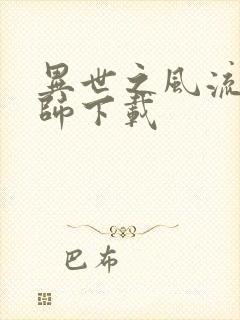 異世之風流
師下載
巴布